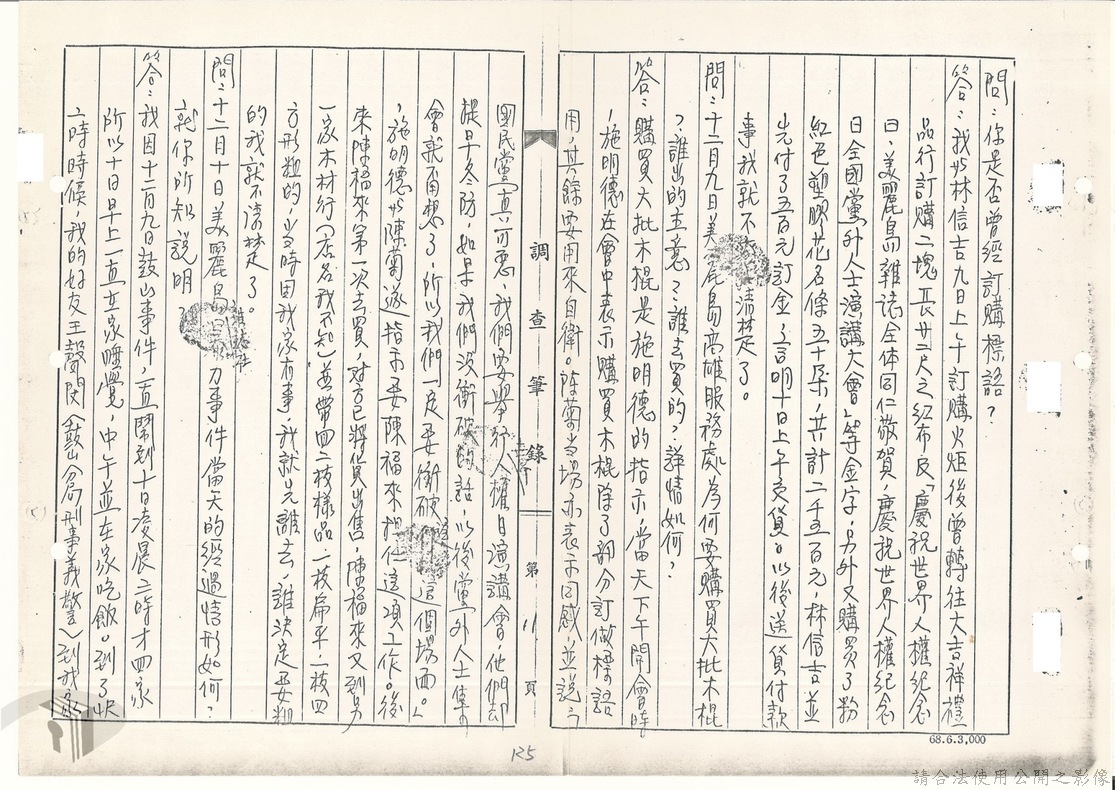 問：你是否曾經訂購標語？
答：我與林信吉九日上午訂購火炬後曾轉往大吉祥禮
品行訂購二塊長廿二尺之紅布及「慶祝世界人權紀念
日，美麗島雜誌全体同仁敬賀，慶祝世界人權紀念
日全國黨外人士演講大會」等金字，另外又購買了粉
紅色塑膠花名條五十朵，共計二千五百元，林信吉並
先付了五百元訂金，言明十日上午交貨。以後送貨付款
事我就不清楚了。
問：十二月九日美麗島高雄服務處為何要購買大批木棍
？誰出的主意？誰去買的？詳情如何？
答：購買大批木棍是施明德的指示，當天下午開會時
，施明德在會中表示購買木棍除了部分訂做標語
用，其餘要用來自衛。陳菊當場亦表示同感，並說：「
國民黨一直可惡，我們要舉行人權日演講會，他們卻
提早冬防，如果我們沒衝破的話，以後黨外人士集
會就甭想了，所以我們一定要衝破這個場面。」
，施明德與陳菊遂指示要陳福來担任這項工作。後
來陳福來第一次去買，對方已將貨出售，陳福來又到另
一家木材行（店名我不知）並帶回二枝樣品一枝扁平，一枝四
方形粗的，当時因我家有事，我就先離去，誰決定要粗
的我就不清楚了。
問：十二月十日美麗島暴力事件當天的經過情形如何？
就你所知說明
答：我因十二月九日鼓山事件，一直鬧到十日凌晨二時才回家
所以十日早上一直在家睡覺，中午並在家吃飯。到了快
二時時候，我的好友王聲閔（鼓山分局刑事義警）到我家
調查筆錄
第11頁
125
68.6.3,000
請合法使用公開之影像